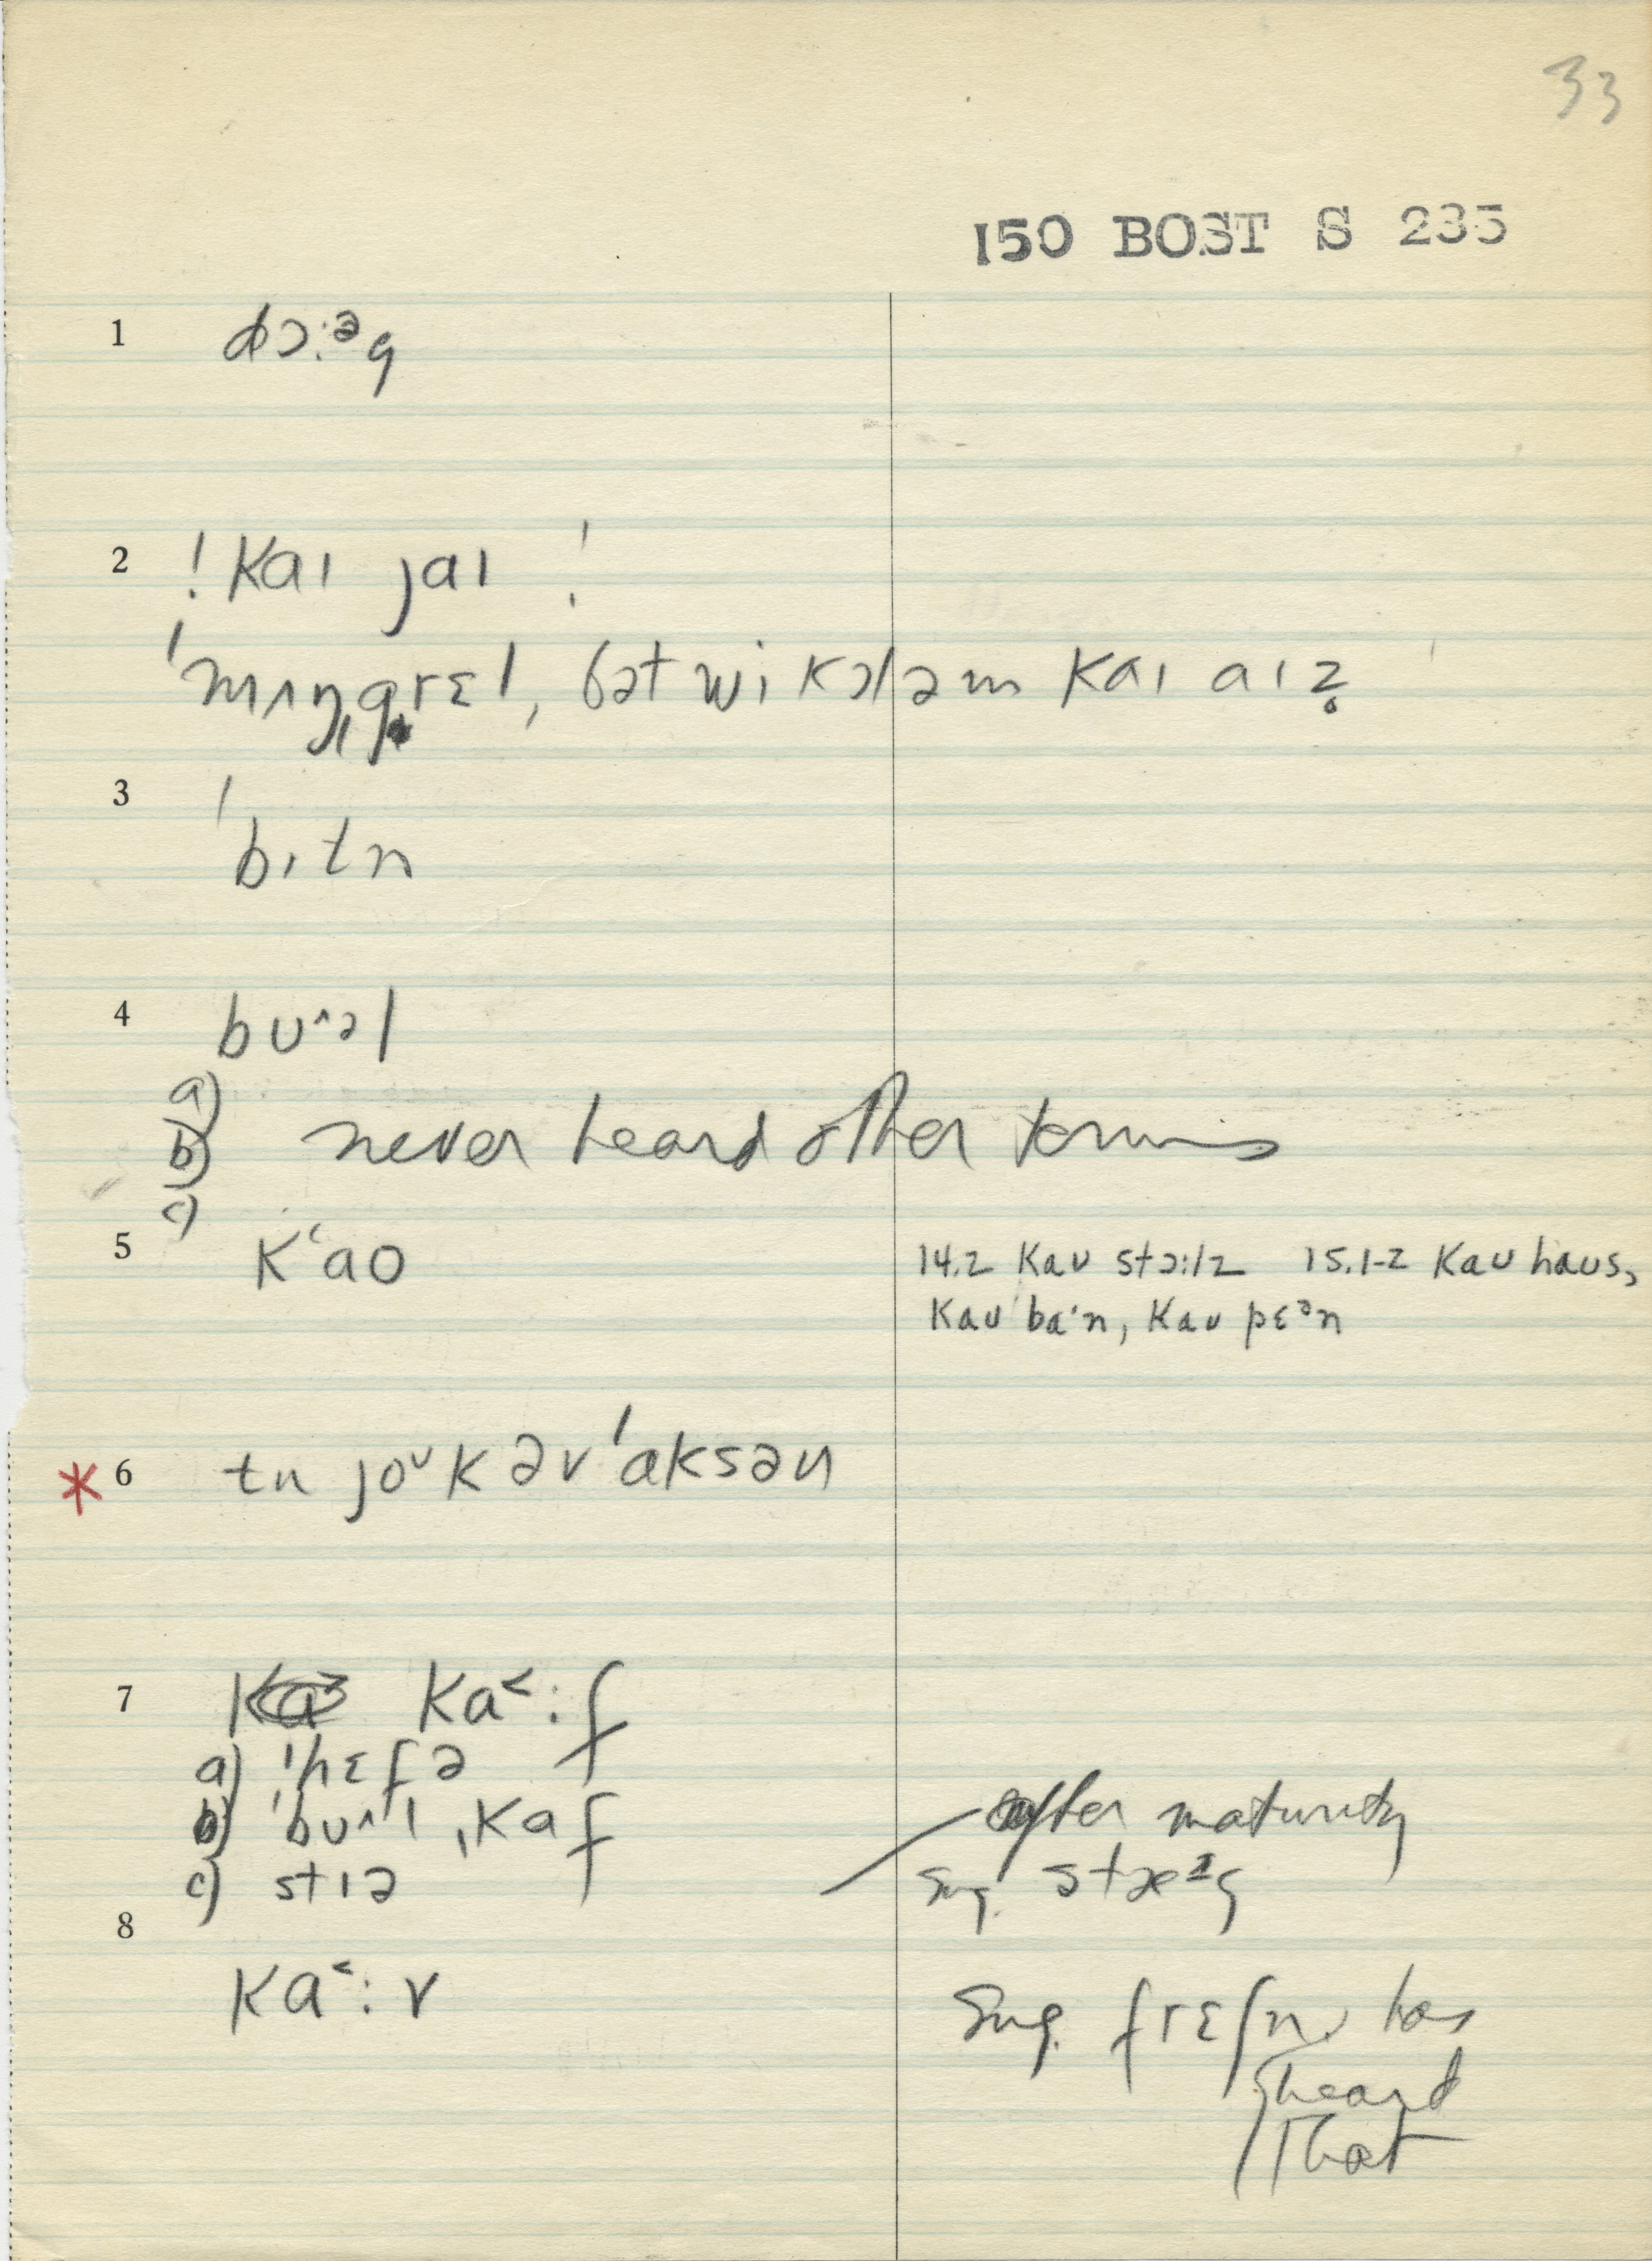 33
150 BOST S 235
1 dɔ:ᵊg
2 ! kaɪ jaɪ !
ˈmʌŋˌgrɛl, bət wi kɔl əm kaɪ aɪz̥
3 ˈbɪtn
4 bʊ^əl
a)
b) never heard other terms
c)
5 kʻao 14.2 kaʊ stɔ:lz 15.1-2 kaʊ haʊs,
kaʊ ba'n, kaʊ pɛᵊn
* 6 tn joᵁk əv ˈaksən
7 ka˂:f
a) ˈhɛfə
b) ˈbʊ^l ˌkaf after maturity
c) stɪə sug. stæᶦg
8
ka˂:v sug. frɛʃn. has
heard
that